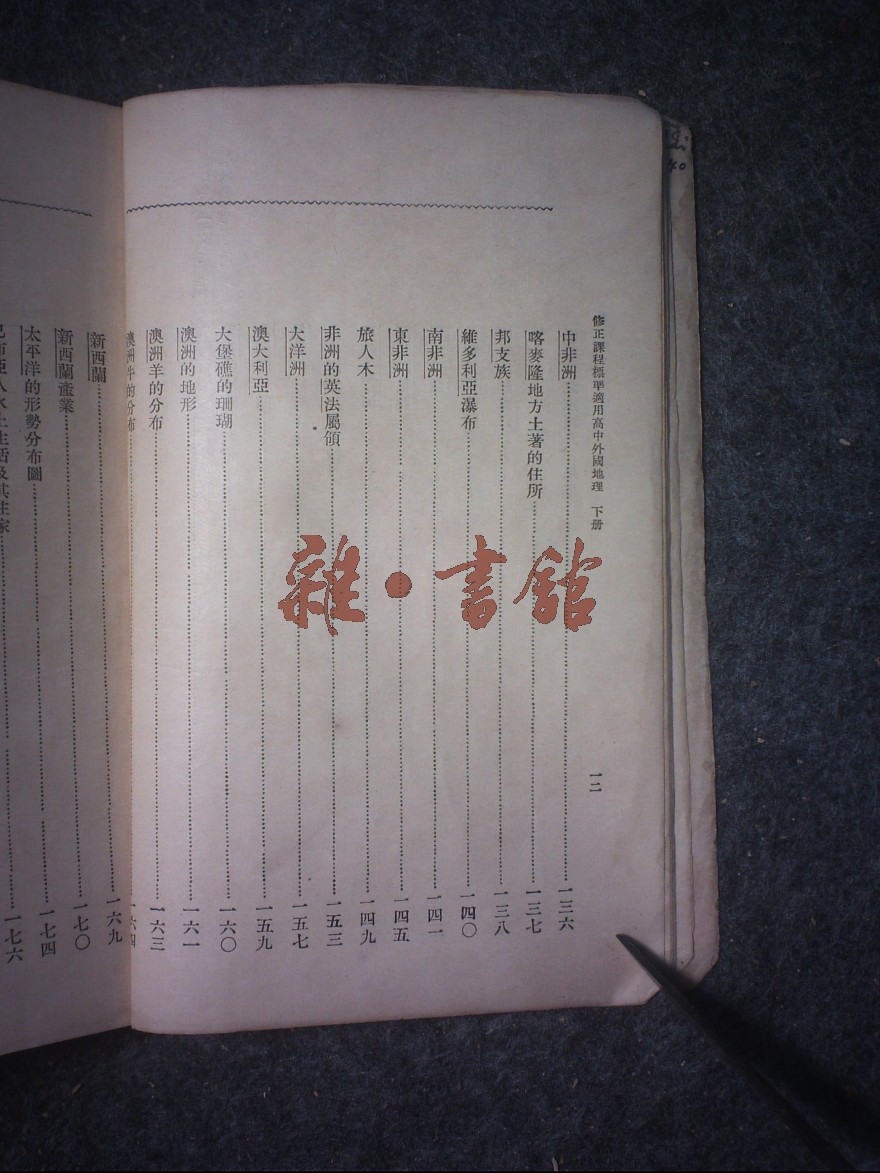 修正課程標準適用高中外國地理　下册
一二
中非洲……一三六
喀麥隆地方土著的住所……一三七
邦支族……一三八
維多利亞瀑布……一四〇
南非洲……一四一
東非洲……一四五
旅人木……一四九
非洲的英法屬領……一五三
大洋洲……一五七
澳大利亞……一五九
大堡礁的珊瑚……一六〇
澳洲的地形……一六一
澳洲羊的分布……一六三
澳洲牛的分布……一六四
新西蘭……一六九
新西蘭產業……一七〇
太平洋的形勢分布圖……一七四
人水上生活及其住家……一七六
雜·書館